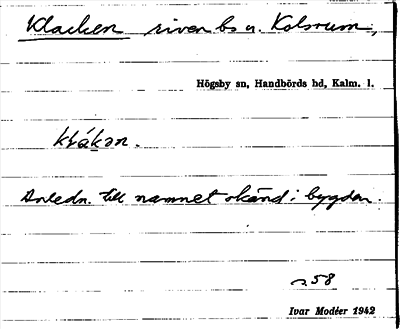 Klacken riven bs u. Kolsrum,
Högsby sn, Handbörds hd, Kalm. l.
klákən.
Anledn. till namnet okänd i bygden.
s. 58
Ivar Modéer 1942